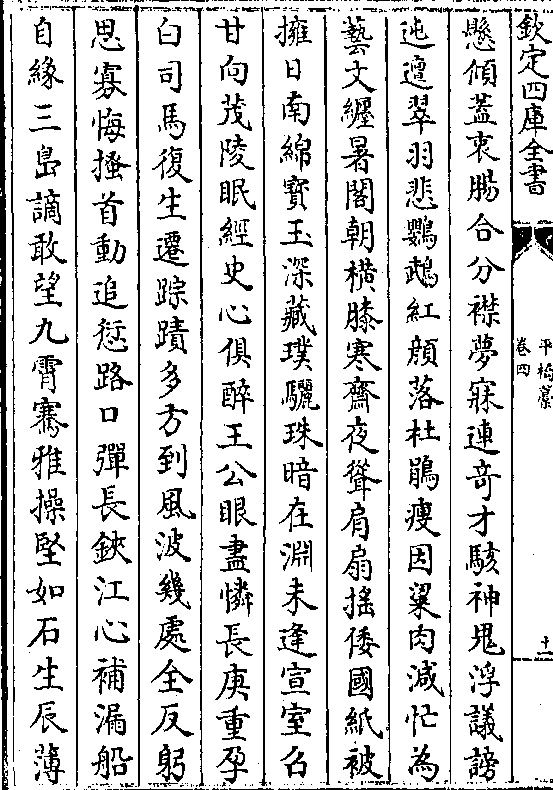 欽定四庫全書
平橋藁
卷四
十一
懸傾蓋衷腸合分襟夢寐連竒才駭神鬼浮議謗
迍邅翠羽悲鸚鵡紅顔落杜鵑瘦因粱肉減忙為
藝文纒暑閣朝横膝寒齋夜聳肩扇揺倭國紙被
擁日南綿寳玉深藏璞驪珠暗在淵未逢宣室召
甘向茂陵眠經史心俱醉王公眼盡憐長庚重孕
白司馬復生遷踪蹟多方到風波幾處全反躬
思寡悔搔首動追愆路口彈長鋏江心補漏船
自緣三島謫敢望九霄騫雅操堅如石生辰薄